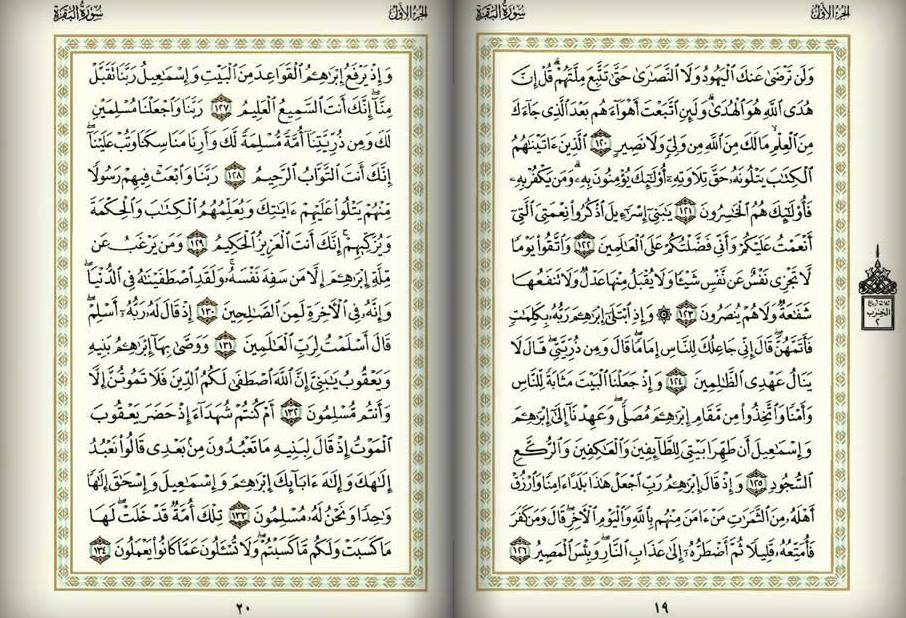 الجزء الأول
سورة البقرة
وَلَن تَرْضَىٰ عَنكَ الْيَهُودُ وَلَا النَّصَارَىٰ حَتَّىٰ تَتَّبِعَ مِلَّتَهُمْ ۗ قُلْ إِنَّ
هُدَى اللَّهِ هُوَ الْهُدَىٰ ۗ وَلَئِنِ اتَّبَعْتَ أَهْوَاءَهُم بَعْدَ الَّذِي جَاءَكَ
مِنَ الْعِلْمِ ۙ مَا لَكَ مِنَ اللَّهِ مِن وَلِيٍّ وَلَا نَصِيرٍ ١٢٠ الَّذِينَ ءَاتَيْنَاهُمُ
الْكِتَابَ يَتْلُونَهُ حَقَّ تِلَاوَتِهِ أُولَٰئِكَ يُؤْمِنُونَ بِهِ ۗ وَمَن يَكْفُرْ بِهِ
فَأُولَٰئِكَ هُمُ الْخَاسِرُونَ ١٢١ يَا بَنِي إِسْرَائِيلَ اذْكُرُوا نِعْمَتِيَ الَّتِي
أَنْعَمْتُ عَلَيْكُمْ وَأَنِّي فَضَّلْتُكُمْ عَلَى الْعَالَمِينَ ١٢٢ وَاتَّقُوا يَوْمًا
لَّا تَجْزِي نَفْسٌ عَن نَّفْسٍ شَيْئًا وَلَا يُقْبَلُ مِنْهَا عَدْلٌ وَلَا تَنفَعُهَا
شَفَاعَةٌ وَلَا هُمْ يُنصَرُونَ ١٢٣ ۞ وَإِذِ ابْتَلَىٰ إِبْرَاهِيمَ رَبُّهُ بِكَلِمَاتٍ
فَأَتَمَّهُنَّ ۖ قَالَ إِنِّي جَاعِلُكَ لِلنَّاسِ إِمَامًا ۖ قَالَ وَمِن ذُرِّيَّتِي ۖ قَالَ لَا
يَنَالُ عَهْدِي الظَّالِمِينَ ١٢٤ وَإِذْ جَعَلْنَا الْبَيْتَ مَثَابَةً لِّلنَّاسِ
وَأَمْنًا وَاتَّخِذُوا مِن مَّقَامِ إِبْرَاهِيمَ مُصَلًّى ۖ وَعَهِدْنَا إِلَىٰ إِبْرَاهِيمَ
وَإِسْمَاعِيلَ أَن طَهِّرَا بَيْتِيَ لِلطَّائِفِينَ وَالْعَاكِفِينَ وَالرُّكَّعِ
السُّجُودِ ١٢٥ وَإِذْ قَالَ إِبْرَاهِيمُ رَبِّ اجْعَلْ هَٰذَا بَلَدًا ءَامِنًا وَارْزُقْ
أَهْلَهُ مِنَ الثَّمَرَاتِ مَنْ ءَامَنَ مِنْهُم بِاللَّهِ وَالْيَوْمِ الْآخِرِ ۖ قَالَ وَمَن كَفَرَ
فَأُمَتِّعُهُ قَلِيلًا ثُمَّ أَضْطَرُّهُ إِلَىٰ عَذَابِ النَّارِ ۖ وَبِئْسَ الْمَصِيرُ ١٢٦
ثلاثة أرباع
الحزب
٢
١٩
الجزء الأول
سورة البقرة
وَإِذْ يَرْفَعُ إِبْرَاهِيمُ الْقَوَاعِدَ مِنَ الْبَيْتِ وَإِسْمَاعِيلُ رَبَّنَا تَقَبَّلْ
مِنَّا ۖ إِنَّكَ أَنتَ السَّمِيعُ الْعَلِيمُ ١٢٧ رَبَّنَا وَاجْعَلْنَا مُسْلِمَيْنِ
لَكَ وَمِن ذُرِّيَّتِنَا أُمَّةً مُّسْلِمَةً لَّكَ وَأَرِنَا مَنَاسِكَنَا وَتُبْ عَلَيْنَا ۖ
إِنَّكَ أَنتَ التَّوَّابُ الرَّحِيمُ ١٢٨ رَبَّنَا وَابْعَثْ فِيهِمْ رَسُولًا
مِّنْهُمْ يَتْلُو عَلَيْهِمْ ءَايَاتِكَ وَيُعَلِّمُهُمُ الْكِتَابَ وَالْحِكْمَةَ
وَيُزَكِّيهِمْ ۚ إِنَّكَ أَنتَ الْعَزِيزُ الْحَكِيمُ ١٢٩ وَمَن يَرْغَبُ عَن
مِّلَّةِ إِبْرَاهِيمَ إِلَّا مَن سَفِهَ نَفْسَهُ ۚ وَلَقَدِ اصْطَفَيْنَاهُ فِي الدُّنْيَا ۖ
وَإِنَّهُ فِي الْآخِرَةِ لَمِنَ الصَّالِحِينَ ١٣٠ إِذْ قَالَ لَهُ رَبُّهُ أَسْلِمْ ۖ
قَالَ أَسْلَمْتُ لِرَبِّ الْعَالَمِينَ ١٣١ وَوَصَّىٰ بِهَا إِبْرَاهِيمُ بَنِيهِ
وَيَعْقُوبُ يَا بَنِيَّ إِنَّ اللَّهَ اصْطَفَىٰ لَكُمُ الدِّينَ فَلَا تَمُوتُنَّ إِلَّا
وَأَنتُم مُّسْلِمُونَ ١٣٢ أَمْ كُنتُمْ شُهَدَاءَ إِذْ حَضَرَ يَعْقُوبَ
الْمَوْتُ إِذْ قَالَ لِبَنِيهِ مَا تَعْبُدُونَ مِن بَعْدِي قَالُوا نَعْبُدُ
إِلَٰهَكَ وَإِلَٰهَ ءَابَائِكَ إِبْرَاهِيمَ وَإِسْمَاعِيلَ وَإِسْحَاقَ إِلَٰهًا
وَاحِدًا وَنَحْنُ لَهُ مُسْلِمُونَ ١٣٣ تِلْكَ أُمَّةٌ قَدْ خَلَتْ ۖ لَهَا
مَا كَسَبَتْ وَلَكُم مَّا كَسَبْتُمْ ۖ وَلَا تُسْأَلُونَ عَمَّا كَانُوا يَعْمَلُونَ ١٣٤
٢٠